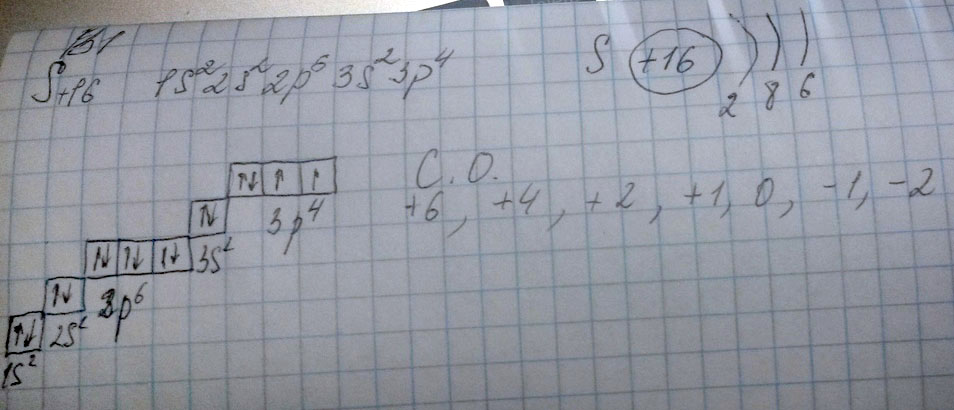 S +16 1s² 2s² 2p⁶ 3s² 3p⁴
S +16 ) ) )
2 8 6
С.О.
+6, +4, +2, +1, 0, -1, -2
↑↓ ↑ ↑
3p⁴
↑↓
3s²
↑↓ ↑↓ ↑↓
2p⁶
↑↓
2s²
↑↓
1s²